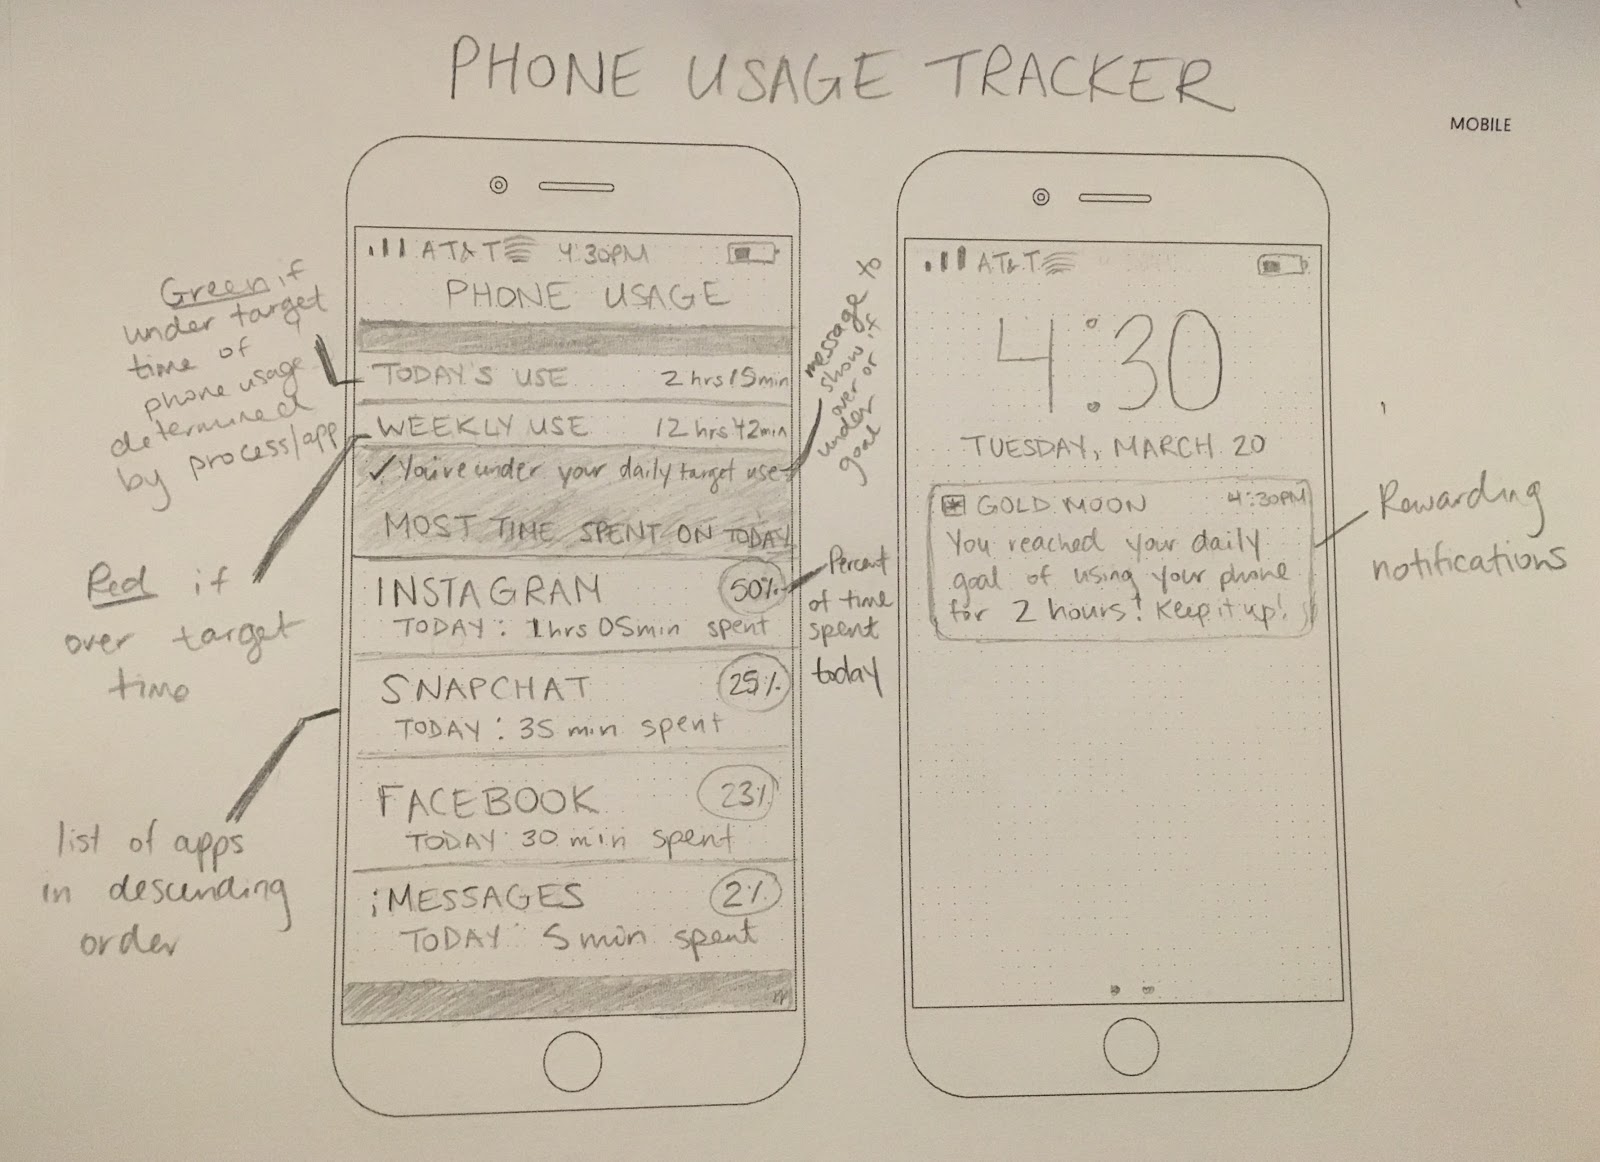 PHONE USAGE TRACKER
MOBILE
Green if
under target
time of
phone usage
determined
by process/app
Red if
over target
time
list of apps
in descending
order
AT&T 4:30PM
PHONE USAGE
TODAY'S USE 2 hrs 15min
WEEKLY USE 12 hrs 42min
✓ You're under your daily target use
MOST TIME SPENT ON TODAY
INSTAGRAM 50%
TODAY: 1hrs 05min spent
SNAPCHAT 25%
TODAY: 35 min spent
FACEBOOK 23%
TODAY: 30 min spent
iMESSAGES 2%
TODAY: 5 min spent
message to
show if
over or
under
goal
Percent
of time
spent
today
AT&T
4:30
TUESDAY, MARCH 20
GOLD MOON 4:30PM
You reached your daily
goal of using your phone
for 2 hours! Keep it up!
Rewarding
notifications